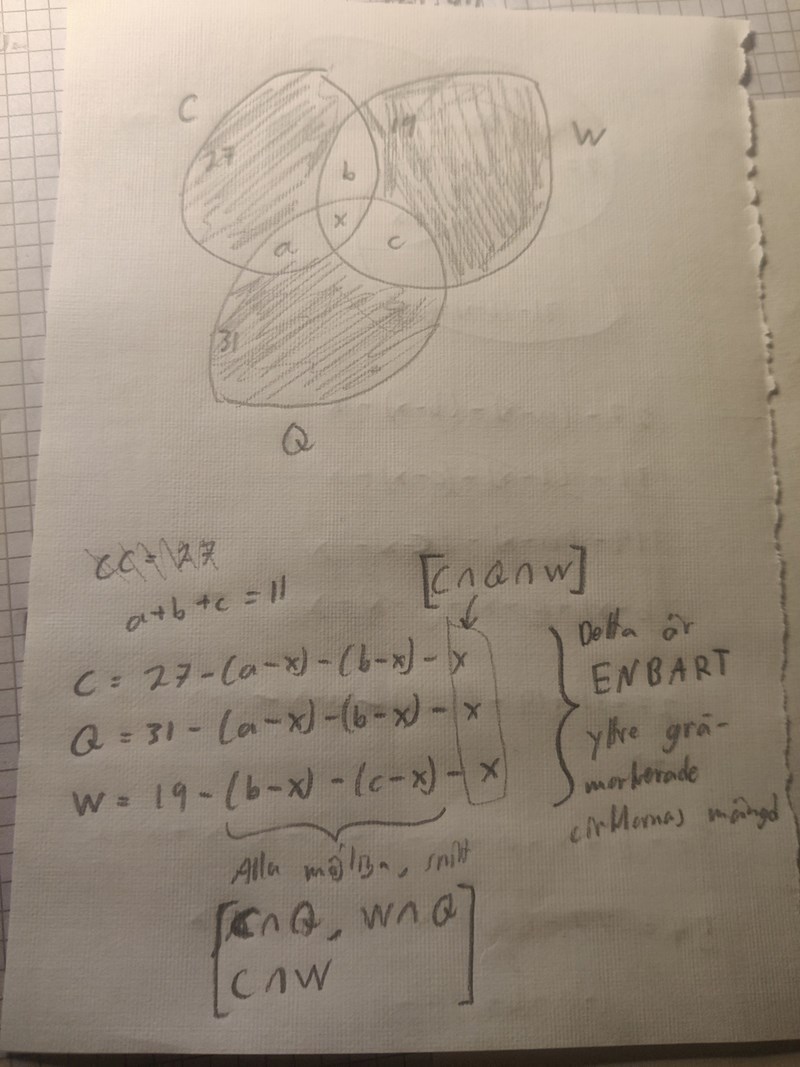 C
W
27
19
b
x
a
c
31
Q
CC = 27
a+b+c = 11
[C∩Q∩W]
C = 27-(a-x)-(b-x)- x
Q = 31 -(a-x)-(b-x)- x
W = 19 -(b-x) -(c-x)- x
Detta är
ENBART
yttre grå-
markerade
cirklarnas mängd
Alla snitt
[C∩Q, W∩Q
C∩W]